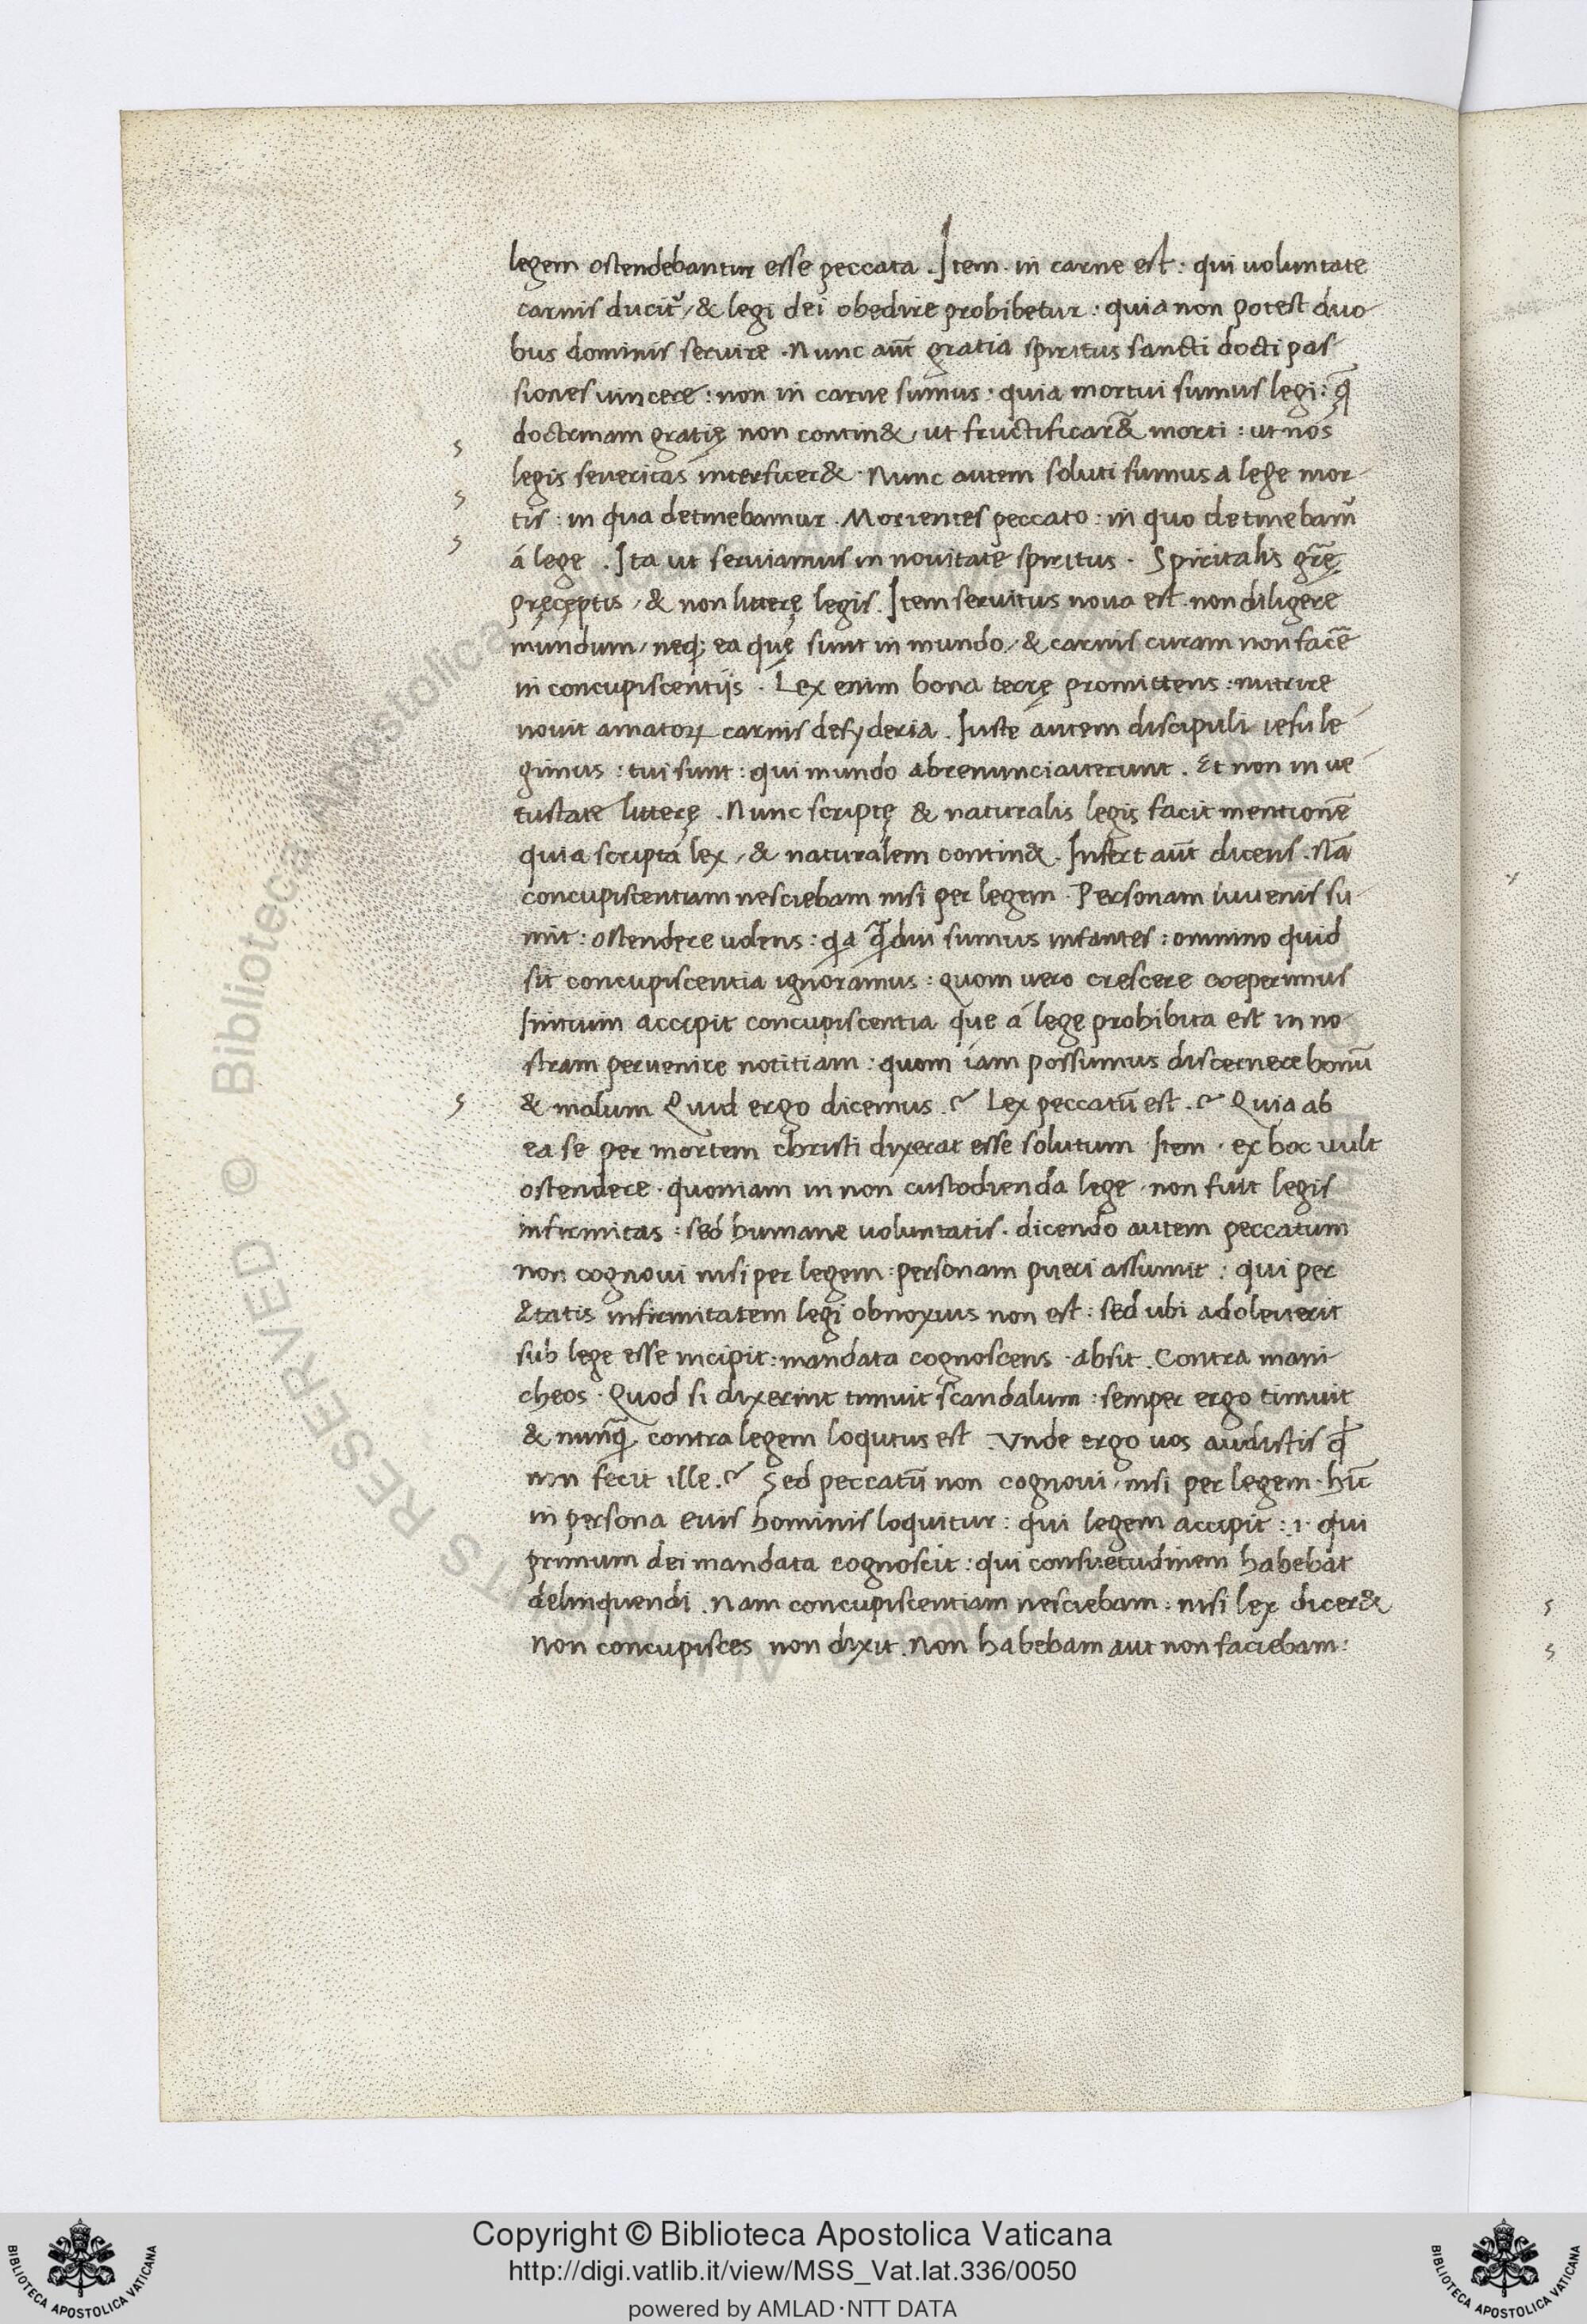 legem ostendebantur esse peccata . Item . in carne est : qui uoluntate
carnis ducit᷑ / & legi dei obedire prohibetur : quia non potest duo-
bus dominis seruire . Nunc aut̄ gratia spiritus sancti docti pas-
siones uincere : non in carne sumus . quia mortui sumus legi : q̄
doctrinam gratię non contin& / ut fructificar& morti : ut nos
legis seueritas interficer& . Nunc autem soluti sumus a lege mor-
tis : in qua detinebamur . Morientes peccato : in quo detinebam᷑
á lege . Ita ut seruiamus in nouitate spiritus . Spiritalis gr̄ę
pręcęptis / & non litterę legis . Item seruitus noua est . non diligere
mundum / neq; ea quę sunt in mundo / & carnis curam non facē
in concupiscentijs . Lex enim bona terrę promittens : nutrire
nouit amatoꝝ carnis desyderia . Iuste autem discipuli iesu le-
gimus : tui sunt : qui mundo abrenunciauerunt . Et non in ue-
tustate litterę . Nunc scriptę & naturalis legis facit mentionē
quia scripta lex / & naturalem contin& . Infert aut̄ dicens . Nā
concupiscentiam nesciebam nisi per legem . Personam iuuenis su-
mit : ostendere uolens : q̄a q̄̄diu sumus infantes : omnino quid
sit concupiscentia ignoramus : quom uero crescere coeperimus
Initium accipit concupiscentia que á lege prohibita est in no-
stram peruenire notitiam : quom iam possumus discernere bonū
& malum Quid ergo dicemus .? Lex peccatū est .? Quia ab
ea se per mortem christi dixerat esse solutum Item . ex hoc uult
ostendere . quoniam in non custodienda lege . non fuit legis
infirmitas : sed humane uoluntatis . dicendo autem peccatum
non cognoui nisi per legem : personam pueri assumit : qui per
&tatis infirmitatem legi obnoxius non est : sed ubi adoleuerit
sub lege esse incipit : mandata cognoscens . absit . Contra mani-
cheos . Quod si dixerint timuit scandalum : semper ergo timuit
& nunq̄ contra legem loqutus est . Vnde ergo uos audistis qđ
non fecit ille .? Sed peccatū non cognoui / nisi per legem . hīc
in persona euis hominis loquitur : qui legem accipit : .i. qui
primum dei mandata cognoscit : qui consuetudinem habebat
delinquendi . Nam concupiscentiam nesciebam : nisi lex dicer&
Non concupisces non dixit . Non habebam aut non faciebam :
Copyright © Biblioteca Apostolica Vaticana
http://digi.vatlib.it/view/MSS_Vat.lat.336/0050
powered by AMLAD·NTT DATA
BIBLIOTECA APOSTOLICA VATICANA
BIBLIOTECA APOSTOLICA VATICANA